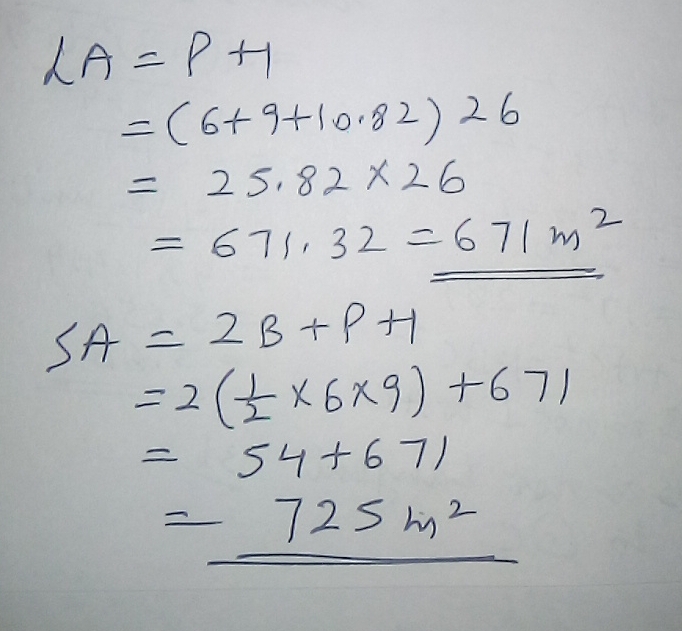 LA = PH
= (6+9+10.82) 26
= 25.82 × 26
= 671.32 = 671 m²
SA = 2B + PH
= 2 (½ × 6×9) + 671
= 54 + 671
= 725 m²